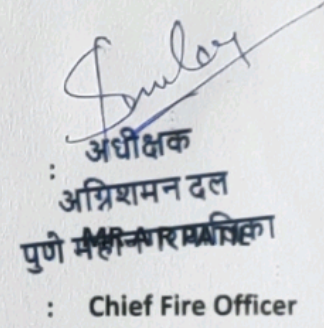 :
अधीक्षक
अग्निशमन दल
पुणे महानगरपालिका
: Chief Fire Officer